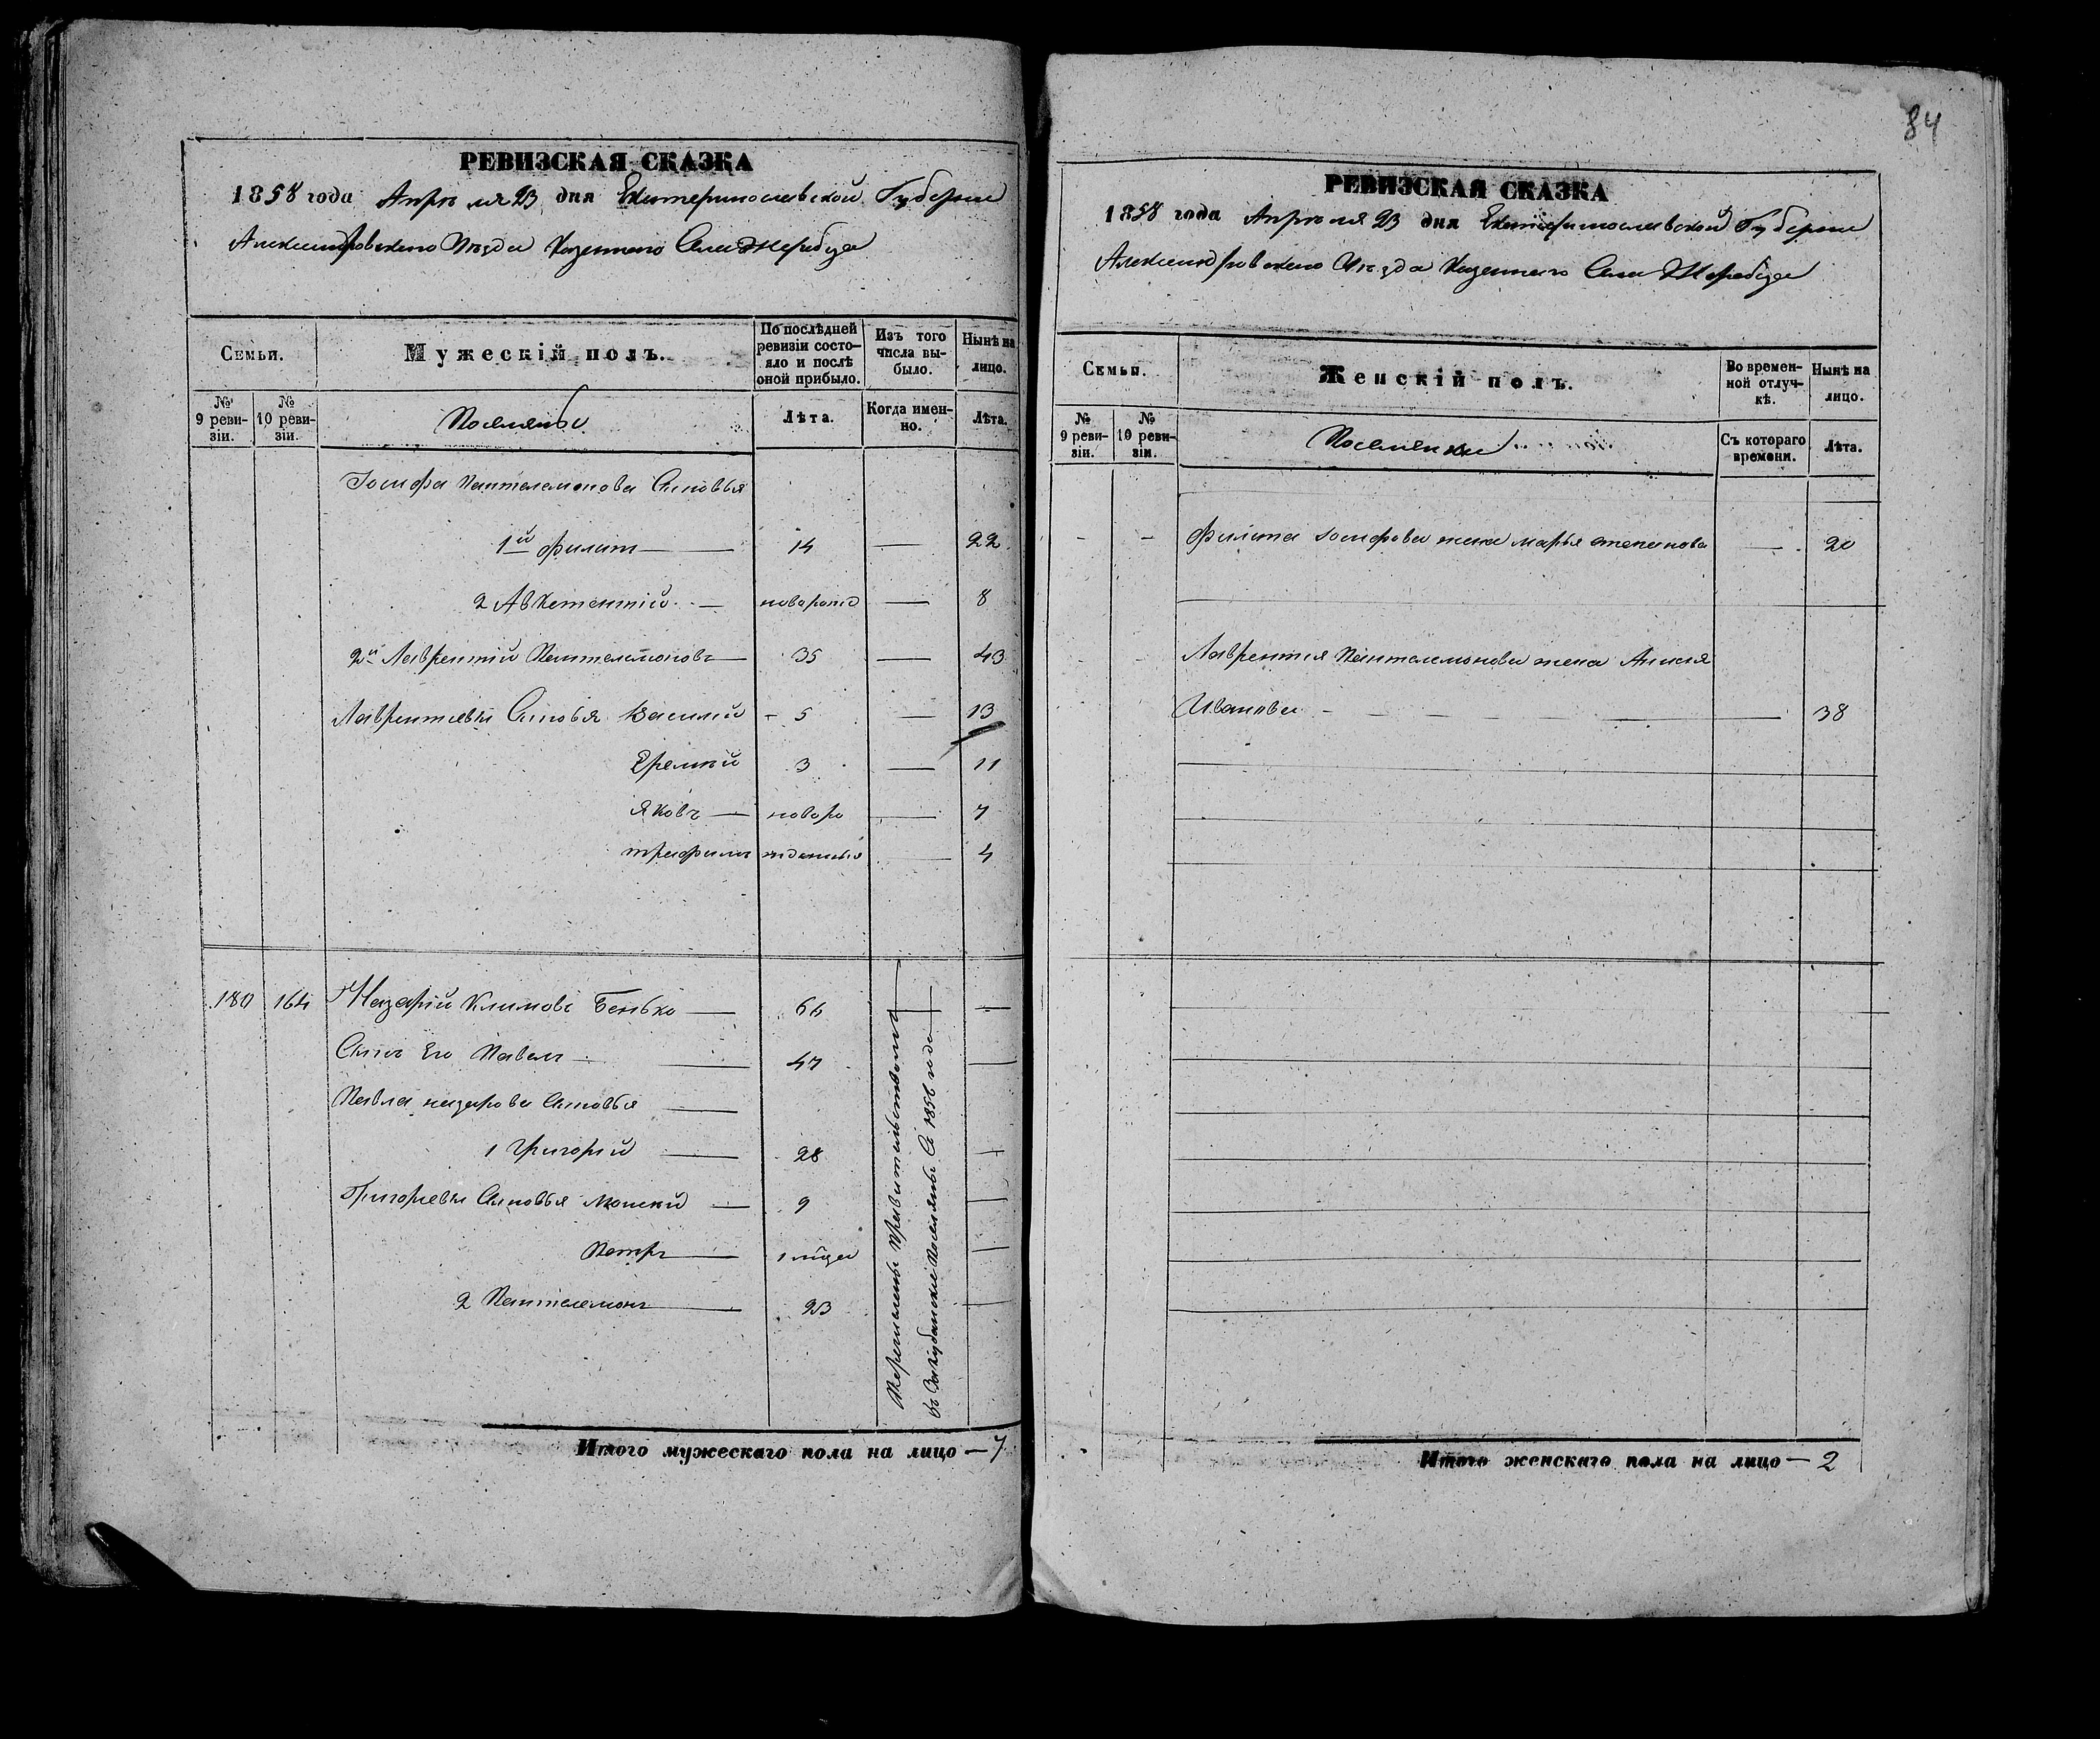 84
РЕВИЗСКАЯ СКАЗКА
1858 года Апреля 23 дня Екатеринославской Губернии
Александровского Уезда Казенного Села Жеребца
Семьи.
Мужескій полъ.
По послѣдней ревизіи состо-
яло и послѣ
оной прибыло.
Изъ того
числа вы-
было.
Нынѣ на
лицо.
№
9 реви-
зіи.
№
10 реви-
зіи.
Поселяне
Лѣта.
Когда имен-
но.
Лѣта.
Іосифа Пантелемонова Сыновья
1й Филат 14 — 22
2 Авксентий новорож — 8
2й Лаврентий Пантелемоновъ 35 — 43
Лаврентиевы Сыновья Василий 5 — 13
Еремий 3 — 11
Яковъ — новоро — 7
Трофимъ жденные — 4
180 164 Назарий Климовъ Бенько — 66 —
Сынъ Его Павелъ — 47 —
Павла Назарова Сыновья —
1 Григорий — 28 —
Григориевы Сыновья Мокий — 9 —
Петръ — 1 мца —
2 Пантелемонъ — 23 —
въ Закубанские Поселяне Съ 1856 года
Итого мужескаго пола на лицо — 7
РЕВИЗСКАЯ СКАЗКА
1858 года Апреля 23 дня Екатеринославской Губернии
Александровского Уезда Казенного Села Жеребца
Семьи.
Женскій полъ.
Во времен-
ной отлуч-
кѣ.
Нынѣ на
лицо.
№
9 реви-
зіи.
№
10 реви-
зіи.
Поселянки
Съ котораго
времени.
Лѣта.
Филата Іосифова жена Марья Степанова — 20
Лаврентия Пантелемонова жена
Иванова — 38
Итого женскаго пола на лицо — 2